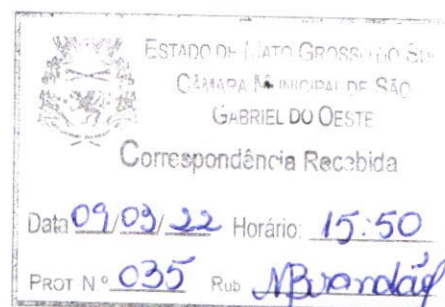 ESTADO DE MATO GROSSO DO SUL
CÂMARA MUNICIPAL DE SÃO
GABRIEL DO OESTE
Correspondência Recebida
Data 09/03/22 Horário: 15:50
PROT Nº 035 Rub NBrandão